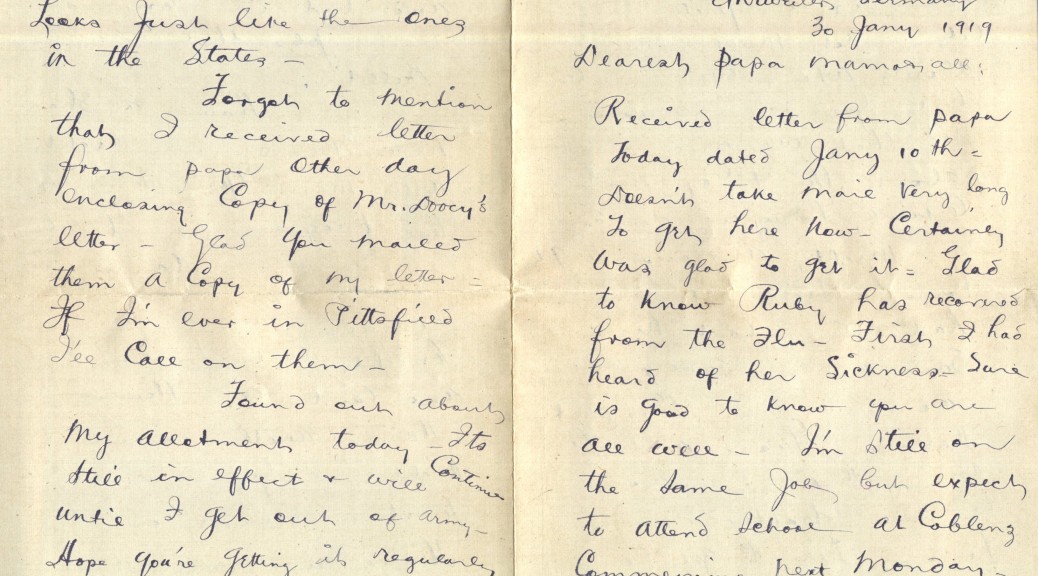 Looks Just like the ones
in the States -
Forgot to mention
that I received letter
from papa other day
enclosing Copy of Mr. Doocy's
letter - Glad you mailed
them a Copy of my letter =
If I'm ever in Pittsfield
I'll Call on them -
Found out about
My allotment today - Its
still in effect & will Continue
until I get out of army -
Hope you're getting it regularly
Germany
30 Jany 1919
Dearest papa mamas all:
Received letter from papa
Today dated Jany 10th =
Doesn't take mail very long
To get here now - Certainly
was glad to get it = Glad
to know Ruby has recovered
from the Flu - First I had
heard of her Sickness - Sure
is good to know you are
all well - I'm still on
the same Job but expect
to attend School at Coblenz
Commencing next Monday -